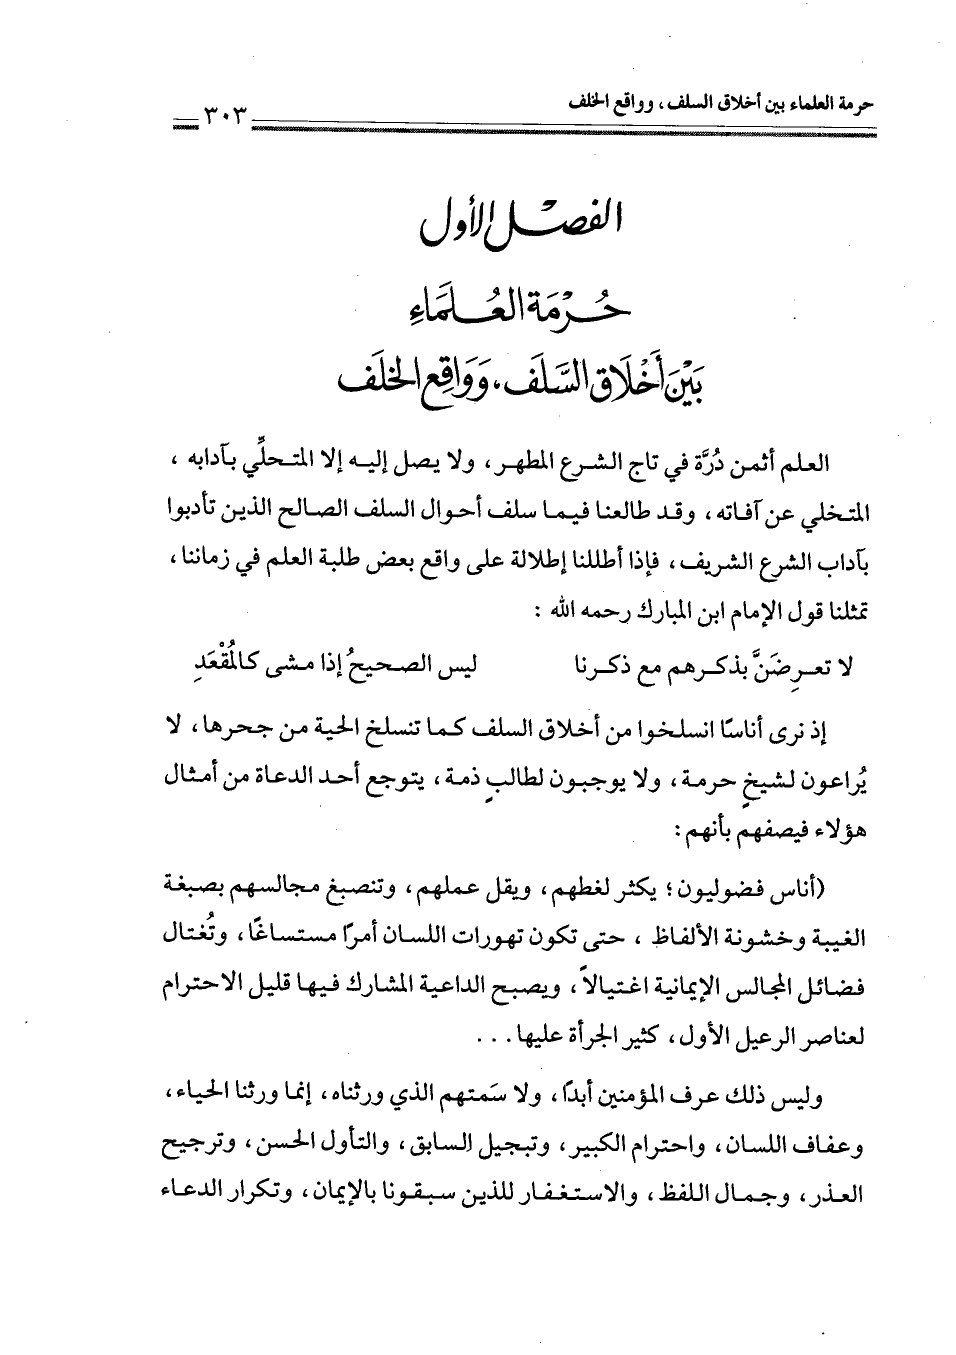 حرمة العلماء بين أخلاق السلف، وواقع الخلف
٣٠٣
الفصل الأول
حُرْمَة العُلَمَاءِ
بَيْنَ أَخْلَاق السَّلَف، وَوَاقِع الخلَف
العلم أثمن دُرَّة في تاج الشرع المطهر، ولا يصل إليه إلا المتحلِّي بآدابه ،
المتخلي عن آفاته، وقد طالعنا فيما سلف أحوال السلف الصالح الذين تأدبوا
بآداب الشرع الشريف، فإذا أطللنا إطلالة على واقع بعض طلبة العلم في زماننا،
تمثلنا قول الإمام ابن المبارك رحمه الله :
لا تعرِضَنَّ بذكرهم مع ذكرنا ليس الصحيحُ إذا مشى كالمُقْعَدِ
إذ نرى أناسًا انسلخوا من أخلاق السلف كما تنسلخ الحية من جحرها، لا
يُراعون لشيخٍ حرمة، ولا يوجبون لطالبٍ ذمة، يتوجع أحد الدعاة من أمثال
هؤلاء فيصفهم بأنهم:
(أناس فضوليون؛ يكثر لغطهم، ويقل عملهم، وتنصبغ مجالسهم بصبغة
الغيبة وخشونة الألفاظ ، حتى تكون تهورات اللسان أمرًا مستساغًا، وتُغتال
فضائل المجالس الإيمانية اغتيالاً، ويصبح الداعية المشارك فيها قليل الاحترام
لعناصر الرعيل الأول، كثير الجرأة عليها...
وليس ذلك عرف المؤمنين أبدًا، ولا سَمتهم الذي ورثناه، إنما ورثنا الحياء،
وعفاف اللسان، واحترام الكبير، وتبجيل السابق، والتأول الحسن، وترجيح
العذر، وجمال اللفظ، والاستغفار للذين سبقونا بالإيمان، وتكرار الدعاء